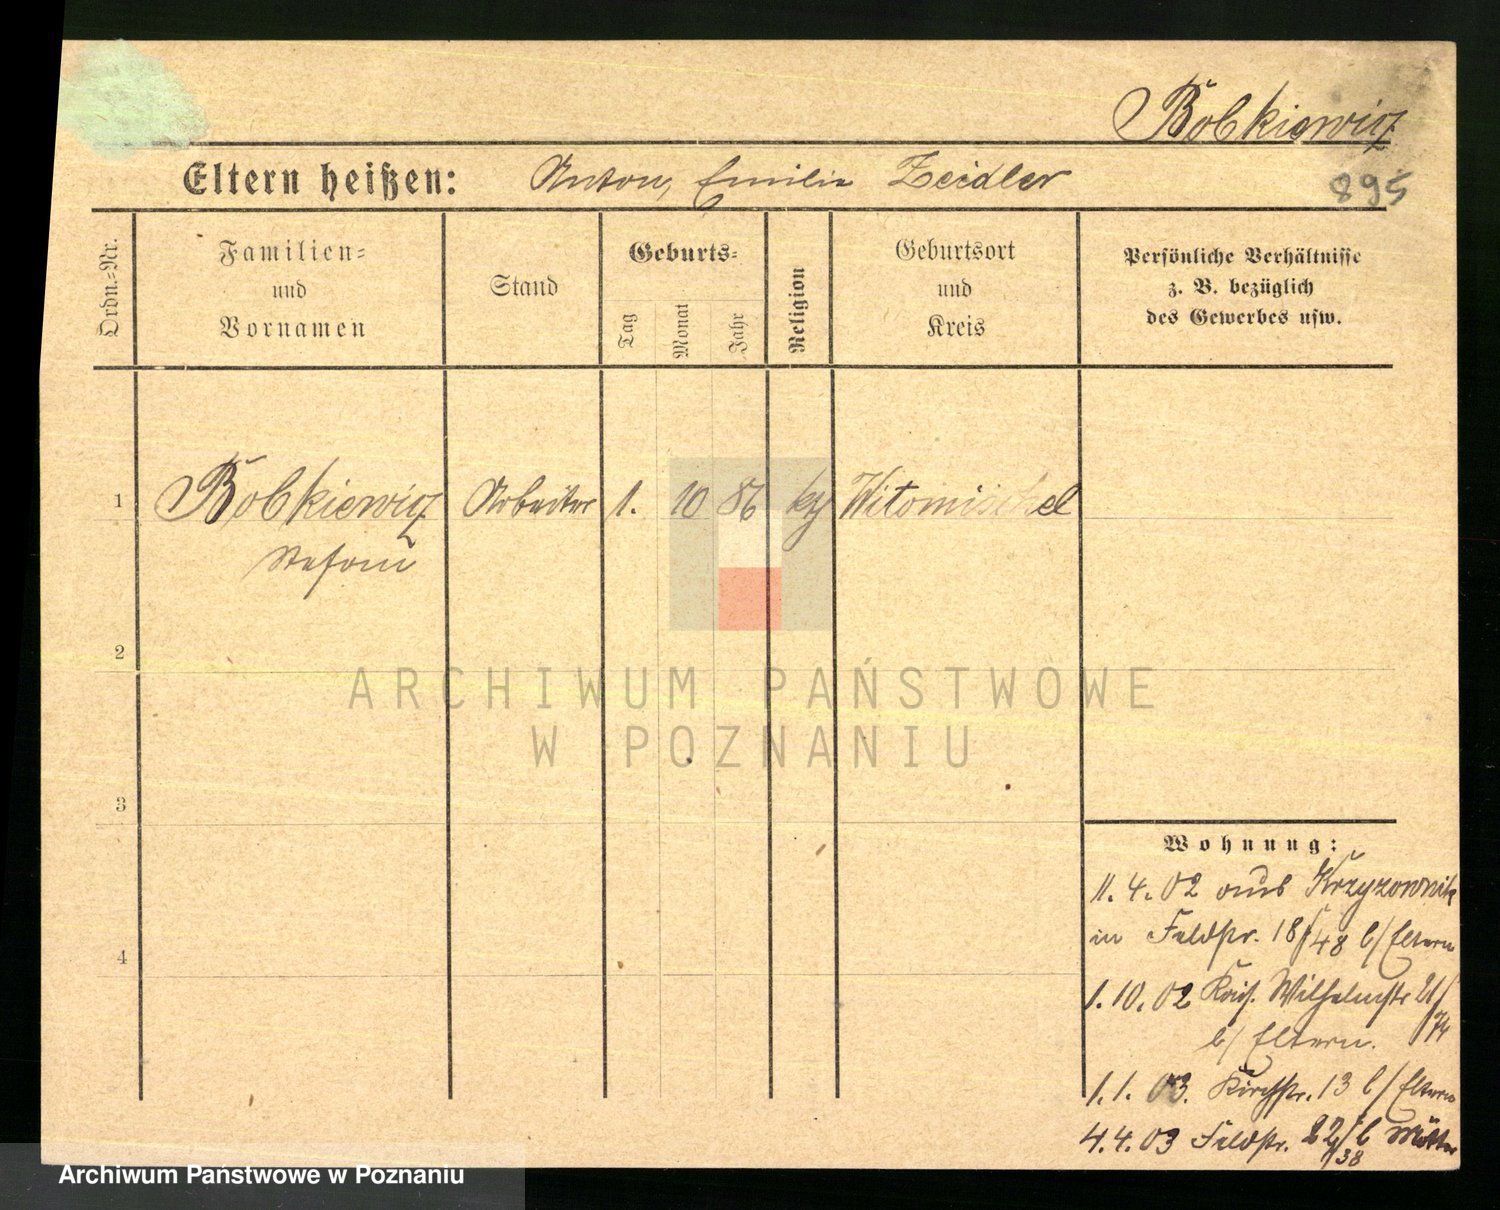 Bobkiewicz
Eltern heißen: Anton, Emilie Zeidler
895
Ordn.-Nr.
Familien-
und
Vornamen
Stand
Geburts-
Tag
Monat
Jahr
Religion
Geburtsort
und
Kreis
Persönliche Verhältnisse
z. B. bezüglich
des Gewerbes usw.
1 Bobkiewicz Arbeiter 1. 10 86 Witomischel
Stefan
2
ARCHIWUM PAŃSTWOWE
W POZNANIU
3
Wohnung:
11.4.02 aus Krzyzownik
in Feldstr. 18/48 b/ Eltern
4
1.10.02 Kais. Wilhelmstr 21/
b/ Eltern. 74
1.1.03. Kirchstr. 13 b/ Eltern
4.4.03 Feldstr. 22/ b Mutter
38
Archiwum Państwowe w Poznaniu